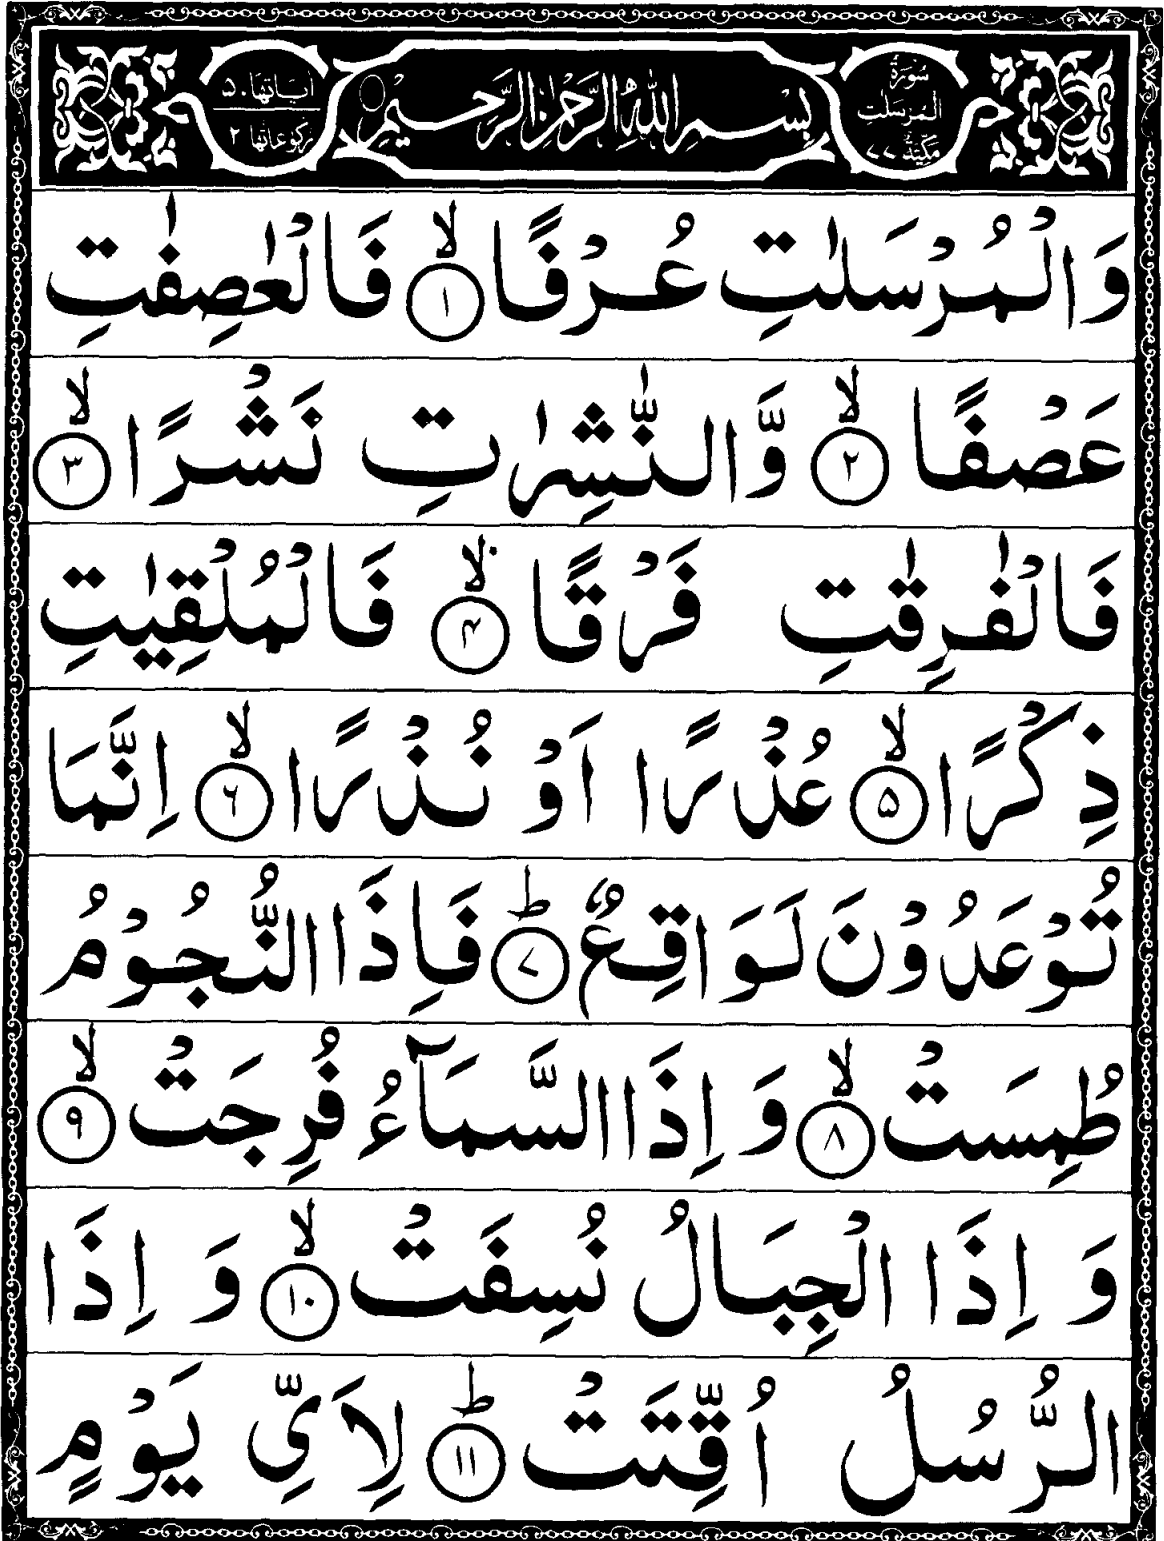 سُوْرَةُ الْمُرْسَلٰتِ مَكِّيَّةٌ ٧٧
بِسْمِ اللّٰهِ الرَّحْمٰنِ الرَّحِيْمِ
اٰيَاتُهَا ٥٠ رُكُوْعَاتُهَا ٢
وَالْمُرْسَلٰتِ عُرْفًا ۙ﴿١﴾ فَالْعٰصِفٰتِ
عَصْفًا ۙ﴿٢﴾ وَّالنّٰشِرٰتِ نَشْرًا ۙ﴿٣﴾
فَالْفٰرِقٰتِ فَرْقًا ۙ﴿۴﴾ فَالْمُلْقِيٰتِ
ذِكْرًا ۙ﴿۵﴾ عُذْرًا اَوْ نُذْرًا ۙ﴿۶﴾ اِنَّمَا
تُوْعَدُوْنَ لَوَاقِعٌ ؕ﴿٧﴾ فَاِذَا النُّجُوْمُ
طُمِسَتْ ۙ﴿٨﴾ وَ اِذَا السَّمَآءُ فُرِجَتْ ۙ﴿٩﴾
وَ اِذَا الْجِبَالُ نُسِفَتْ ۙ﴿١٠﴾ وَ اِذَا
الرُّسُلُ اُقِّتَتْ ؕ﴿١١﴾ لِاَيِّ يَوْمٍ